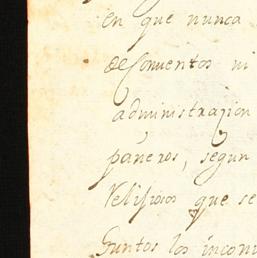 en que nunca
de Conventos ni
administracion
pañeros, segun
Religiosos que se
Juntos los inconv